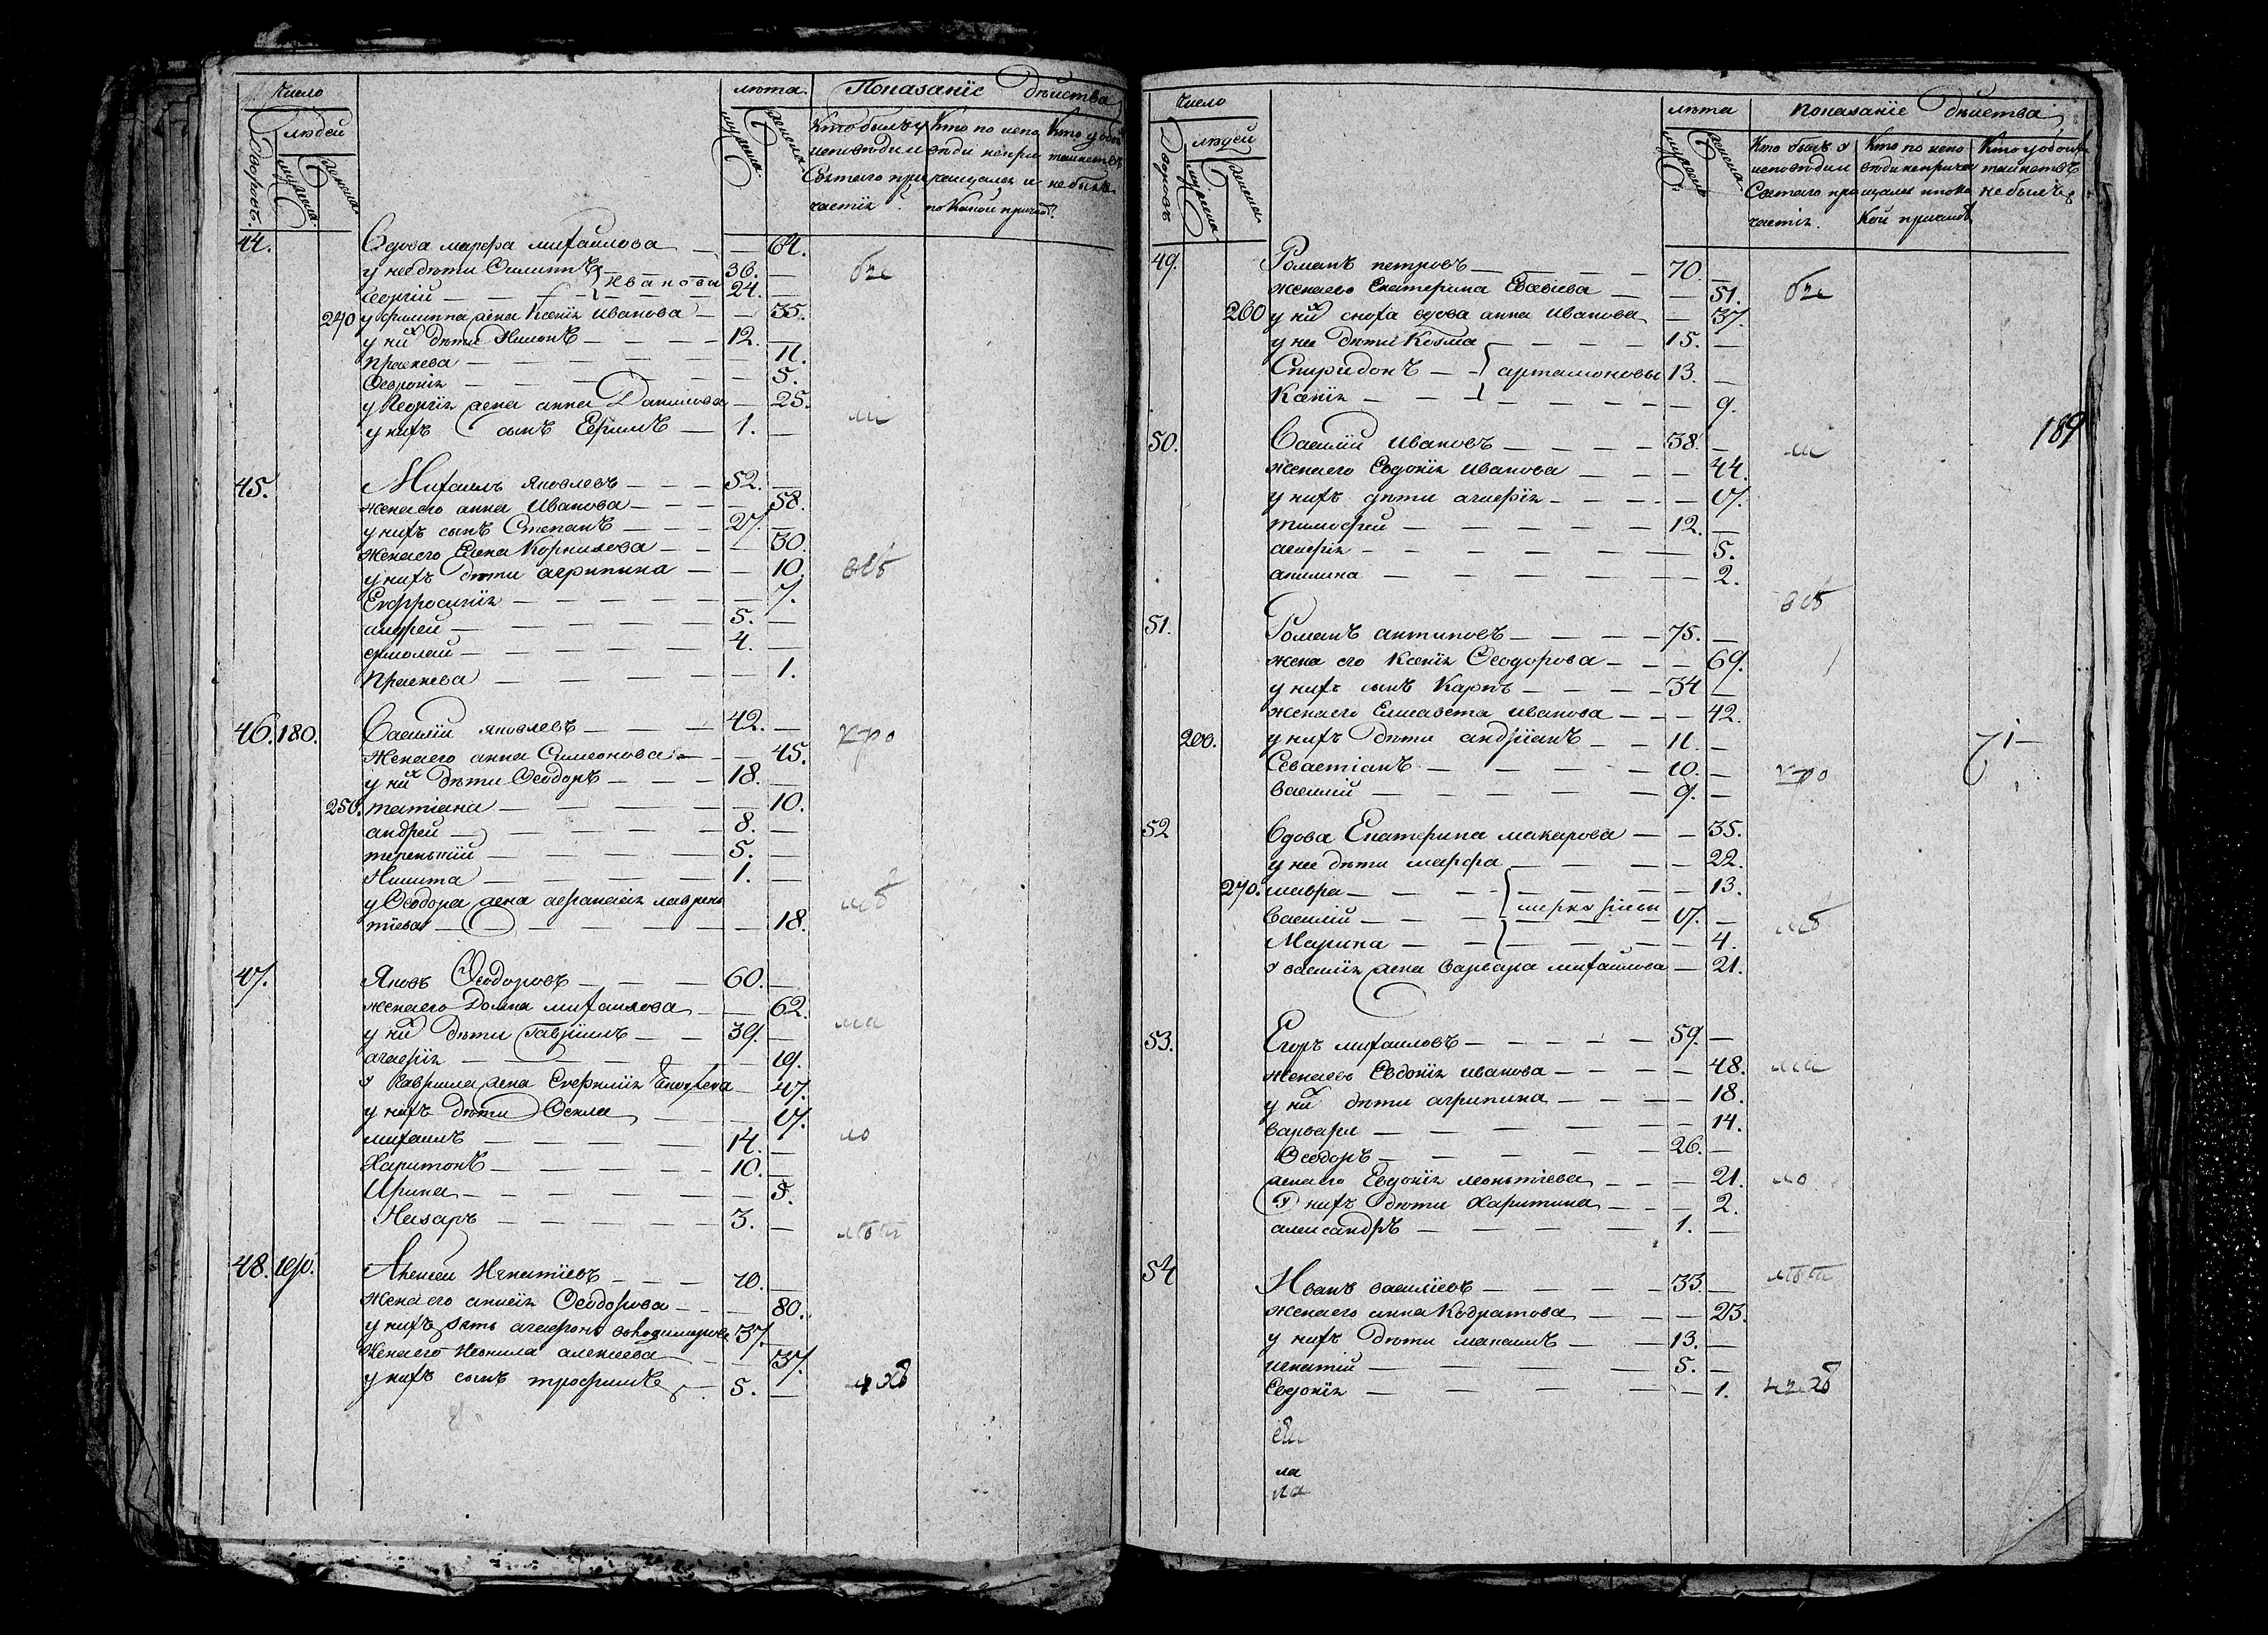 Число
людей
Дворовъ.
мужеска
женска
лѣта.
мужеска
женска
Показанїе Дѣйства
Кто былъ у исповѣди и Святаго причастїя
Кто по испо вѣди непри чащался и по какой причинѣ.
Кто у обои таинствъ не былъ
44. Вдова марѳа михаилова — — 64.
у нее дѣти Филиппъ } Ивановы 36. —
Георгїй — — — 24. —
240 у филиппа жена Ксенїя иванова — — 35.
у них дѣти — — — 12. —
Праскева — — — 11.
Февронїя — — — 5.
у Георгїя жена анна Данилова — 25.
у нихъ сынъ Ефримъ — 1. —
45. Михаилъ яковлевъ — — — 52. —
жена его анна Иванова — — — 58.
у нихъ сынъ Степанъ — — — 27. —
жена его Елена Корнилова — — — 30.
у нихъ дѣти агрипина — — 10.
Евфросинїя — — — 7.
андрей — — — 5. —
ермолай — — — 4. —
Праскева — — — 1.
46. 180. Василїй яковлевъ — — — 42. —
Жена его анна Симеонова — — 45.
у них дѣти Ѳеодоръ — — — 18. —
250. татїана — — — 10.
андрей — — — 8. —
терентїй — — — 5. —
Никита — — — 1. —
у Ѳеодора жена афанасїя лаврен
тїева — — — 18.
47. Яковъ Ѳеодоровъ — — — 60. —
жена его Домна михаилова — — 62.
у них дѣти Гаврїилъ — — 39. —
агафїя — — — 19.
у Гаврила жена — 47.
у нихъ дѣти Ѳекла — — — 17.
михаилъ — — — 14. —
Харитонъ — — — 10. —
Ирина — — — 5.
Назаръ — — — 3. —
48. 190. Алексей Игнатїевъ — — — 70. —
жена его Ѳеодорова — — 80.
у нихъ зять агафонъ 37. —
Жена его Неонила алексеева — — 37.
у нихъ сынъ трофимъ — 5. —
Число
людей
Дворовъ
мужеска
женска
лѣта
мужеска
женска
Показанїе Дѣйства
Кто былъ у исповѣди и Святаго при частїя.
Кто по испо вѣди неприча щался и по ка кой причинѣ
Кто у обоихъ таинствъ не былъ
49. Романъ петровъ — — — 70. —
жена его Екатерина Евсевїева — — 51.
260 у них сноха вдова анна Иванова — 37.
у нее дѣти Козма — — — 15. —
Спиридонъ — — } артамоновы 13. —
Ксенїя — — — 9.
189
50. Василїй Ивановъ — — — 38. —
жена его Евдокїя Иванова — — — 44.
у нихъ дѣти агафїя — — — 17.
тимофей — — — 12. —
агафїя — — — 5.
акилина — — — 2.
51. Романъ антиповъ — — — 75. —
жена его Ксенїя Ѳеодорова — — — 69.
у нихъ сынъ Карпъ — — — 34 —
жена его Елисавета иванова — — — 42.
200. у нихъ дѣти андрїанъ — — 11. —
Севастїанъ — — — 10. —
василїй — — — 9. —
52 Вдова Екатерина макарова — — 35.
у нее дѣти марѳа — — — 22.
270. мавра — — — 13.
Василїй — — — 17. —
Марина — — — 4.
у василїя жена варвара михаилова — 21.
53. Егоръ михаиловъ — — — 59. —
жена его Евдокїя иванова — — — 48.
у них дѣти агрипина — — — 18.
варвара — — — 14.
Ѳеодоръ — — — 26. —
жена его Евдокїя леонтїева — — — 21.
У нихъ дѣти Харитина — — — 2.
александръ — — — 1. —
54 Иванъ василїевъ — — — 33. —
жена его анна Кодратова — — — 23.
у нихъ дѣти мануилъ — — 13. —
игнатїй — — — 5. —
Евдокїя — — — 1.
ла
ла